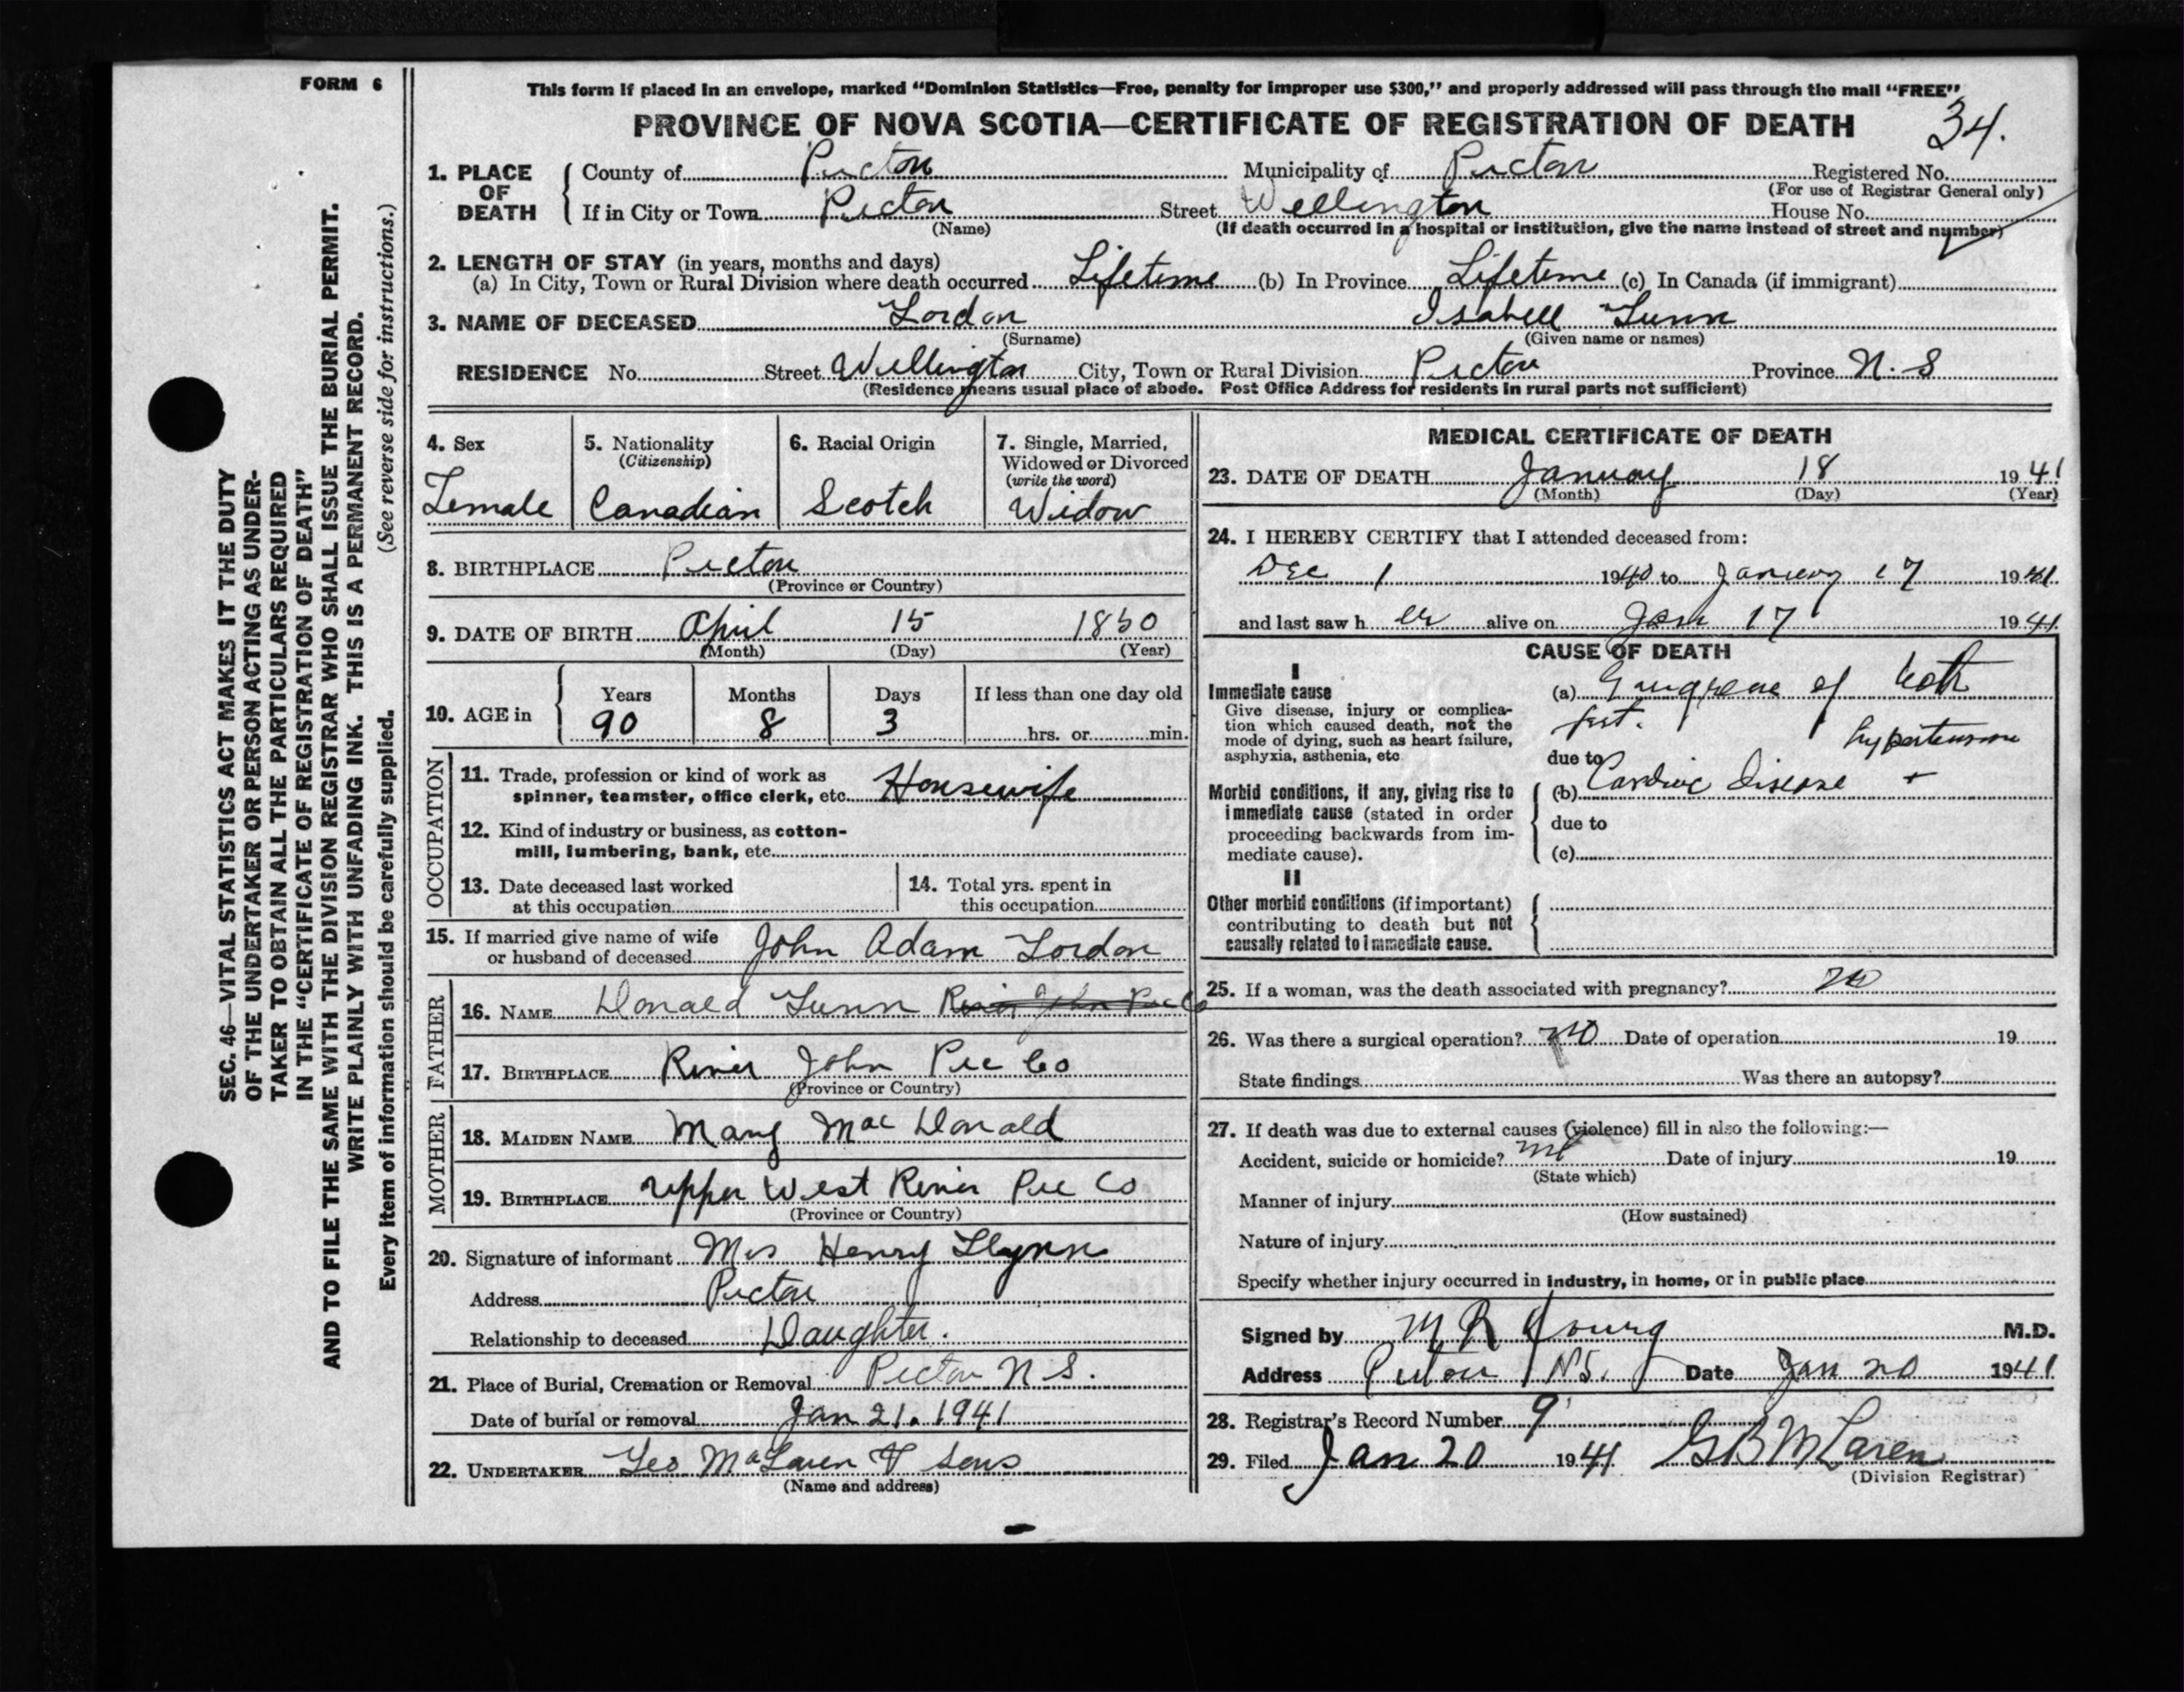 FORM 6
This form if placed in an envelope, marked "Dominion Statistics—Free, penalty for improper use $300," and properly addressed will pass through the mail "FREE"
PROVINCE OF NOVA SCOTIA—CERTIFICATE OF REGISTRATION OF DEATH 34.
1. PLACE OF DEATH
County of Pictou Municipality of Pictou Registered No.
(For use of Registrar General only)
If in City or Town Pictou Street Wellington House No.
(Name) (If death occurred in a hospital or institution, give the name instead of street and number)
2. LENGTH OF STAY (in years, months and days)
(a) In City, Town or Rural Division where death occurred Lifetime (b) In Province Lifetime (c) In Canada (if immigrant)
3. NAME OF DECEASED Gordon Isabell Gunn
(Surname) (Given name or names)
RESIDENCE No. Street Wellington City, Town or Rural Division Pictou Province N. S
(Residence means usual place of abode. Post Office Address for residents in rural parts not sufficient)
4. Sex
Female
5. Nationality
(Citizenship)
Canadian
6. Racial Origin
Scotch
7. Single, Married,
Widowed or Divorced
(write the word)
Widow
8. BIRTHPLACE Pictou
(Province or Country)
9. DATE OF BIRTH April 15 1850
(Month) (Day) (Year)
10. AGE in
Years Months Days If less than one day old
90 8 3 hrs. or min.
OCCUPATION
11. Trade, profession or kind of work as
spinner, teamster, office clerk, etc. Housewife
12. Kind of industry or business, as cotton-
mill, lumbering, bank, etc.
13. Date deceased last worked
at this occupation
14. Total yrs. spent in
this occupation
15. If married give name of wife
or husband of deceased John Adam Gordon
FATHER
16. NAME Donald Gunn River John Pic Co
17. BIRTHPLACE River John Pic Co
(Province or Country)
MOTHER
18. MAIDEN NAME Mary MacDonald
19. BIRTHPLACE Upper West River Pic Co
(Province or Country)
20. Signature of informant Mrs Henry Flynn
Address Pictou
Relationship to deceased Daughter.
21. Place of Burial, Cremation or Removal Pictou N S.
Date of burial or removal Jan 21. 1941
22. UNDERTAKER Geo McLaren & Sons
(Name and address)
MEDICAL CERTIFICATE OF DEATH
23. DATE OF DEATH January 18 1941
(Month) (Day) (Year)
24. I HEREBY CERTIFY that I attended deceased from:
Dec 1 1940 to January 17 1941
and last saw h er alive on Jan 17 1941
CAUSE OF DEATH
I
Immediate cause
Give disease, injury or complica-
tion which caused death, not the
mode of dying, such as heart failure,
asphyxia, asthenia, etc
(a) Gangrene of both
feet.
due to
Morbid conditions, if any, giving rise to
immediate cause (stated in order
proceeding backwards from im-
mediate cause).
(b) Cardiac disease + hypertension
due to
(c)
II
Other morbid conditions (if important)
contributing to death but not
causally related to immediate cause.
25. If a woman, was the death associated with pregnancy? no
26. Was there a surgical operation? no Date of operation 19
State findings Was there an autopsy?
27. If death was due to external causes (violence) fill in also the following:—
Accident, suicide or homicide? Date of injury 19
(State which)
Manner of injury
(How sustained)
Nature of injury
Specify whether injury occurred in industry, in home, or in public place
Signed by M R Young M.D.
Address Pictou N.S. Date Jan 20 1941
28. Registrar's Record Number 9
29. Filed Jan 20 1941 G B McLaren
(Division Registrar)
SEC. 46—VITAL STATISTICS ACT MAKES IT THE DUTY
OF THE UNDERTAKER OR PERSON ACTING AS UNDER-
TAKER TO OBTAIN ALL THE PARTICULARS REQUIRED
IN THE "CERTIFICATE OF REGISTRATION OF DEATH"
AND TO FILE THE SAME WITH THE DIVISION REGISTRAR WHO SHALL ISSUE THE BURIAL PERMIT.
WRITE PLAINLY WITH UNFADING INK. THIS IS A PERMANENT RECORD.
Every item of information should be carefully supplied. (See reverse side for instructions.)